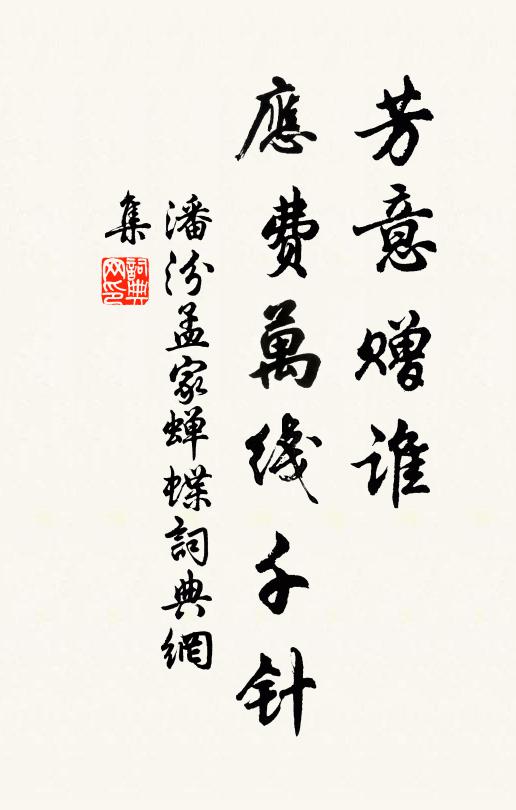 芳意赠谁
應費萬线千针
潘汾孟家蝉蝶詞典網
集
詞典
网印